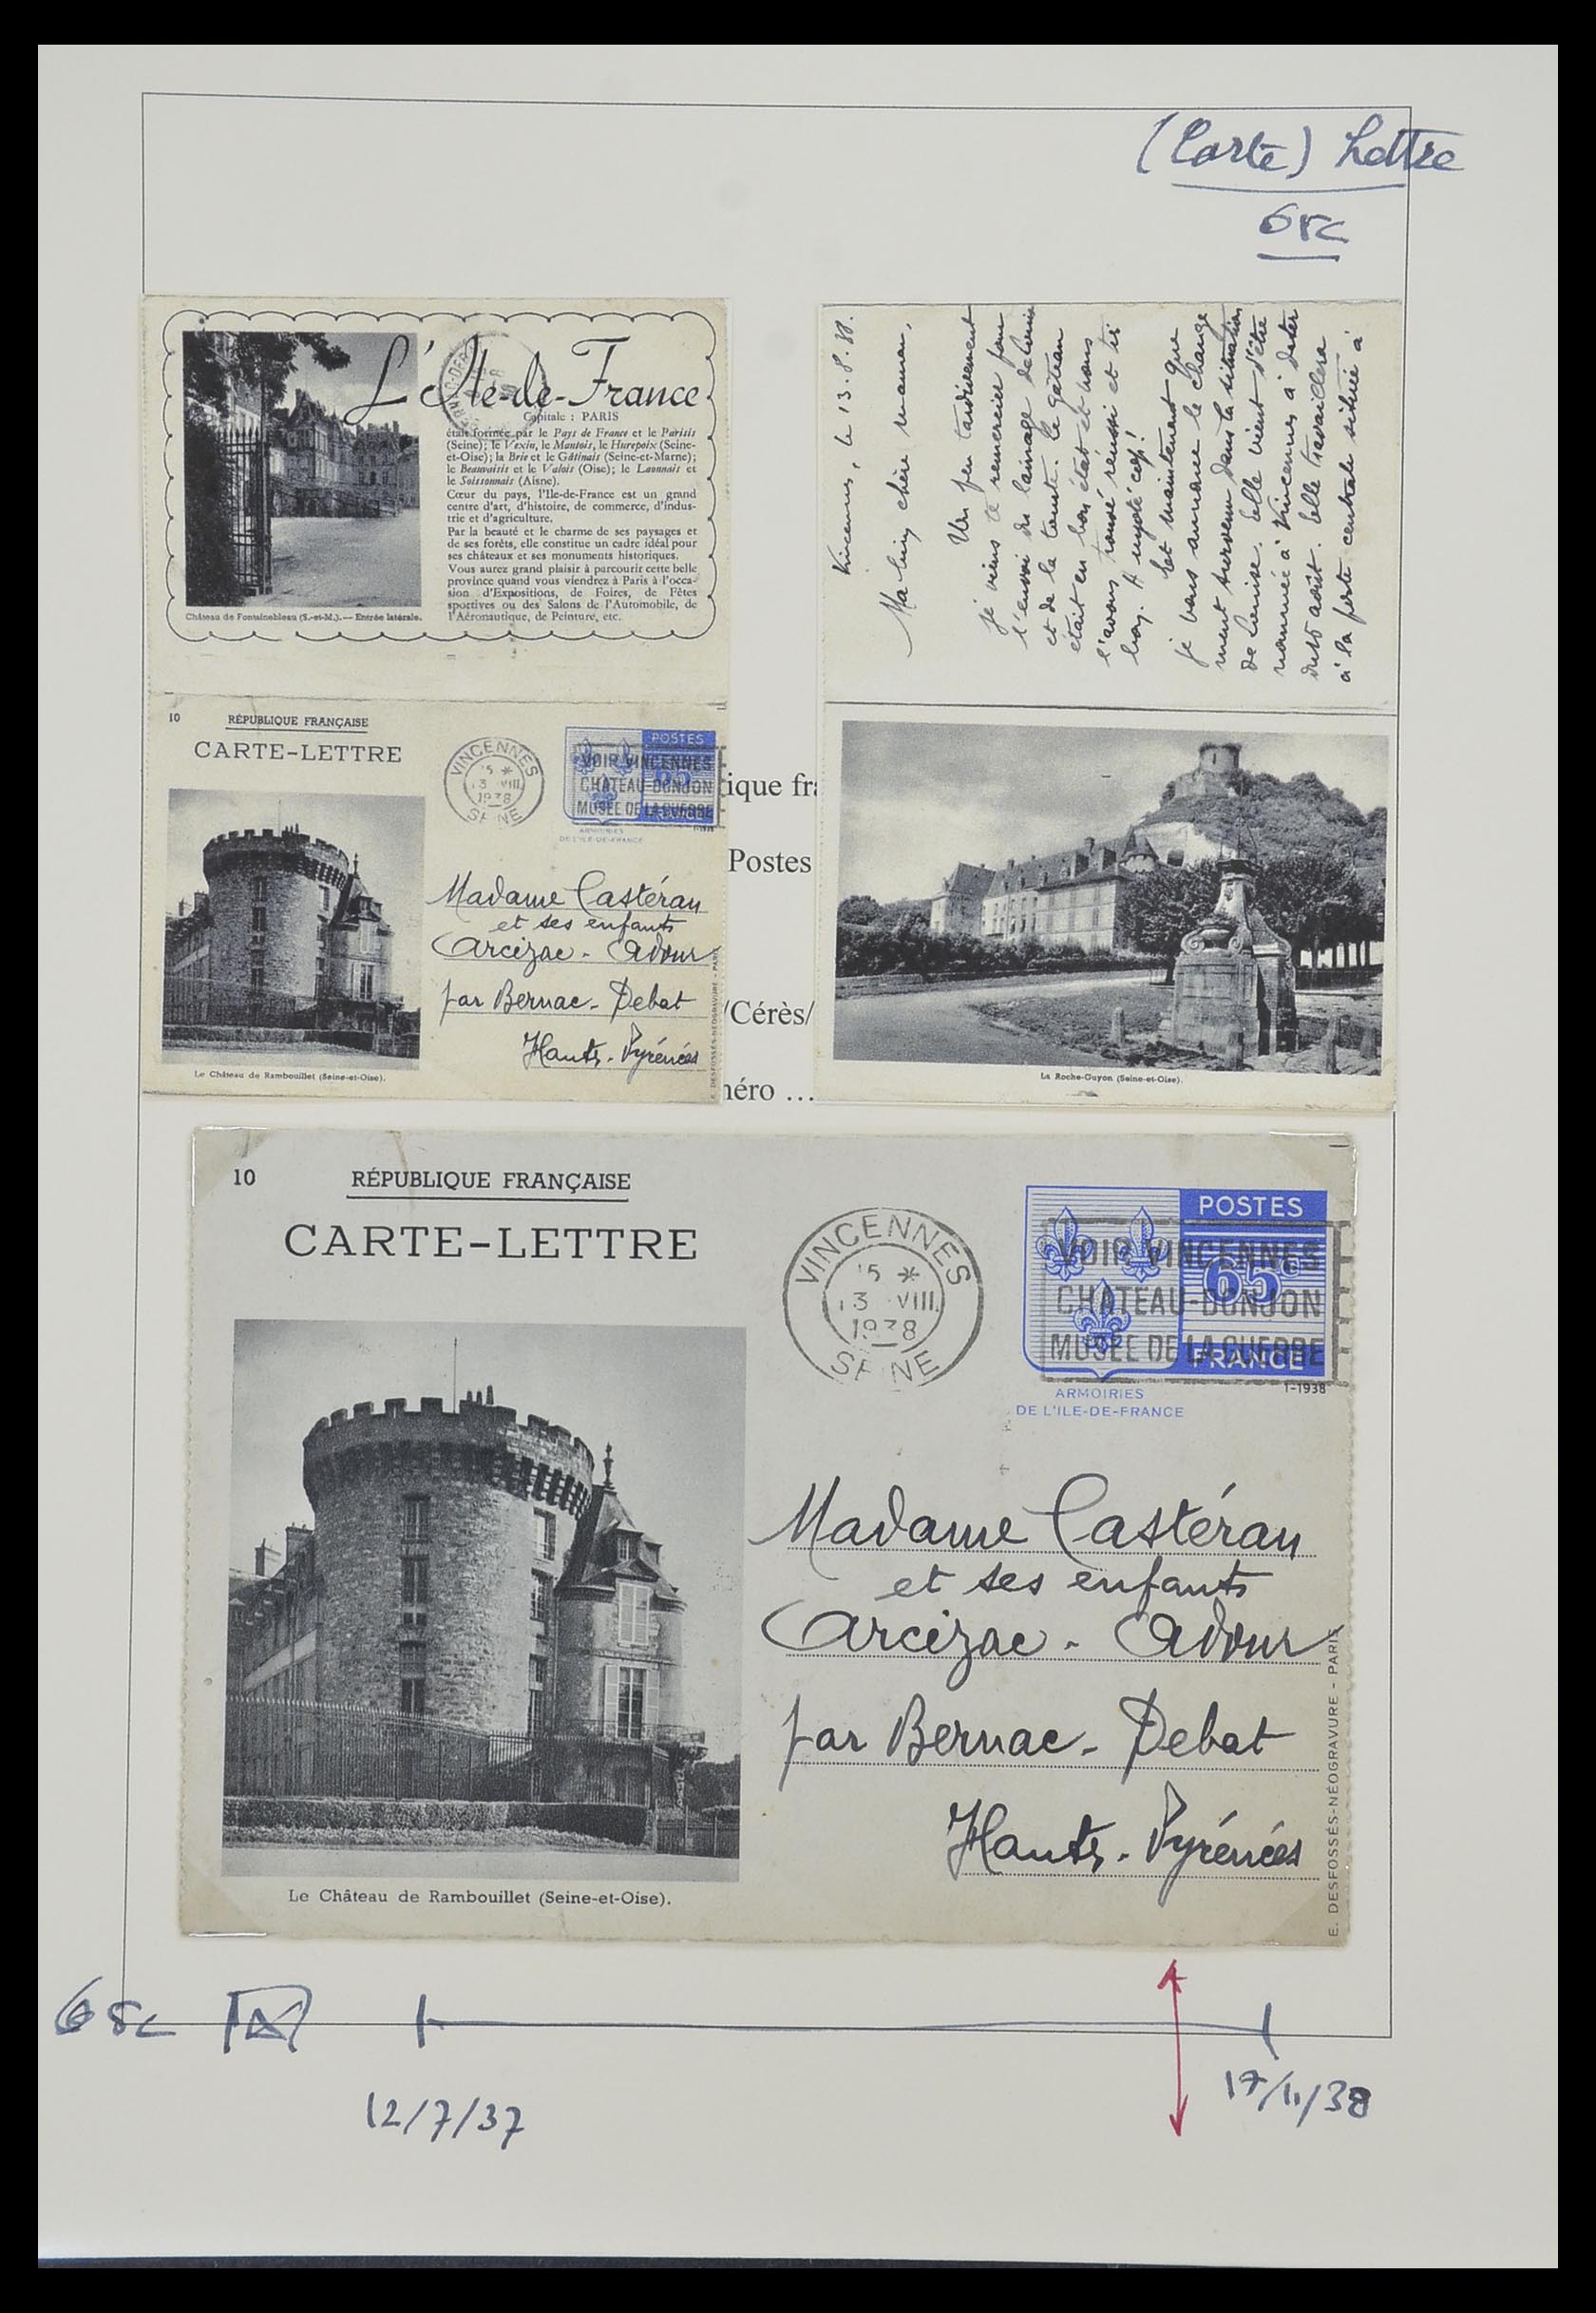 (Carte) Lettre
65c
L'Ile-de-France
Capitale : PARIS
était formée par le Pays de France et le Parisis
(Seine); le Vexin, le Mantois, le Hurepoix (Seine-
et-Oise); la Brie et le Gâtinais (Seine-et-Marne);
le Beauvaisis et le Valois (Oise); le Laonnais et
le Soissonnais (Aisne).
Cœur du pays, l'Ile-de-France est un grand
centre d'art, d'histoire, de commerce, d'indus-
trie et d'agriculture.
Par la beauté et le charme de ses paysages et
de ses forêts, elle constitue un cadre idéal pour
ses châteaux et ses monuments historiques.
Vous aurez grand plaisir à parcourir cette belle
province quand vous viendrez à Paris à l'occa-
sion d'Expositions, de Foires, de Fêtes
sportives ou des Salons de l'Automobile, de
l'Aéronautique, de Peinture, etc.
Château de Fontainebleau (S.-et-M.). — Entrée latérale.
Vincennes, le 13.8.38.
Ma bien chère maman,
Un peu tardivement
je viens te remercier pour
l'envoi du lainage de Louise
et de la tourte. Le gâteau
était en bon état et nous
l'avons trouvé réussi et très
bon.
Et maintenant que
je vous annonce le change-
ment survenu dans la situation
de Louise. Elle vient d'être
nommée à Vincennes à dater
du 16 août. Elle travaillera
à la poste centrale située à
10
RÉPUBLIQUE FRANÇAISE
CARTE-LETTRE
VINCENNES
15 *
13 VIII
1938
SEINE
POSTES
65c
FRANCE
VOIR VINCENNES
CHATEAU-DONJON
MUSÉE DE LA GUERRE
1-1938
ARMOIRIES
DE L'ILE-DE-FRANCE
Madame Castéran
et ses enfants
Arcizac-Adour
par Bernac-Debat
Hautes-Pyrénées
Le Château de Rambouillet (Seine-et-Oise).
E. DESFOSSÉS-NÉOGRAVURE - PARIS
ique fra
Postes
/Cérès/
néro …
La Roche-Guyon (Seine-et-Oise).
10
RÉPUBLIQUE FRANÇAISE
CARTE-LETTRE
VINCENNES
15 *
13 VIII
1938
SEINE
POSTES
65c
FRANCE
VOIR VINCENNES
CHATEAU-DONJON
MUSÉE DE LA GUERRE
1-1938
ARMOIRIES
DE L'ILE-DE-FRANCE
Madame Castéran
et ses enfants
Arcizac-Adour
par Bernac-Debat
Hautes-Pyrénées
Le Château de Rambouillet (Seine-et-Oise).
E. DESFOSSÉS-NÉOGRAVURE - PARIS
65c
12/7/37
17/11/38